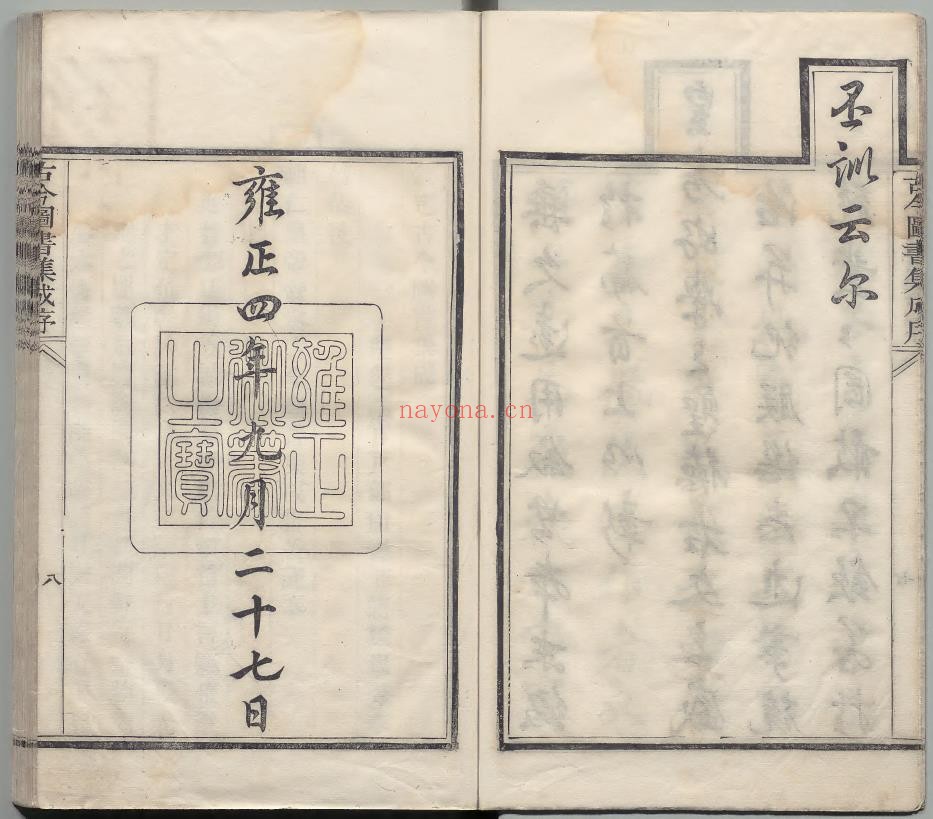 古今圖書集成序
丕訓云尔
雍正四年九月二十七日
雍正
御筆
之寶
古今圖書集成序
八
nayona.cn